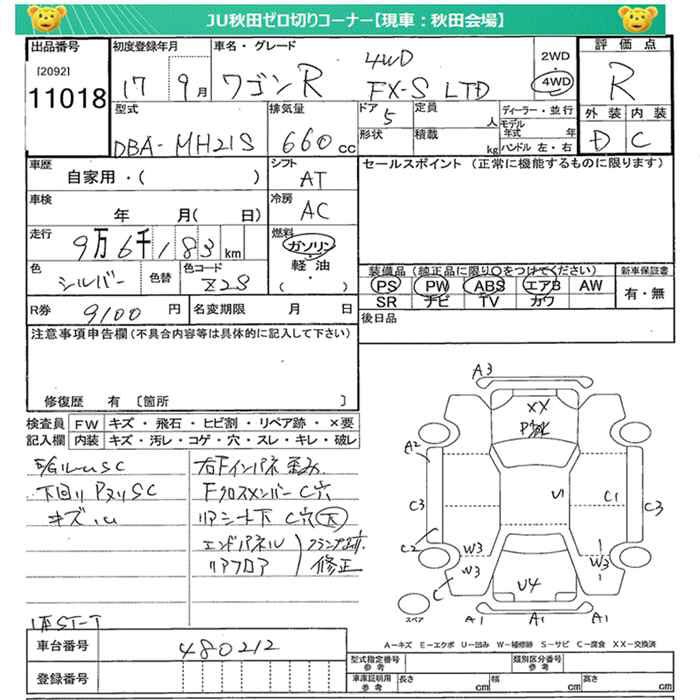 JU秋田ゼロ切りコーナー【現車：秋田会場】
出品番号
[2092]
11018
初度登録年月
17年 9月
車名・グレード
ワゴンR
4WD
FX-S LTD
2WD
・
4WD
評価点
R
外装 内装
D C
型式
DBA-MH21S
排気量
660cc
ドア
5
定員
人
形状
積載
kg
ディーラー・並行
モデル
年式 年
ハンドル 左・右
車歴
自家用・( )
シフト
AT
セールスポイント (正常に機能するものに限ります)
車検
年 月( 日)
冷房
AC
走行
9万6千183km
燃料
ガソリン
・
軽油
・
( )
色
シルバー
色替
色コード
Z2S
装備品 (純正品に限り○をつけてください)
PS PW ABS エアB AW
SR ナビ TV カワ
新車保証書
有・無
R券
9100円
名変期限 月 日
後日品
注意事項申告欄 (不具合内容等は具体的に記入して下さい)
修復歴 有 [箇所 ]
検査員
記入欄
FW キズ・飛石・ヒビ割・リペア跡・×要
内装 キズ・汚レ・コゲ・穴・スレ・キレ・破レ
下回り Pヌリ SC
右Fインパネ 歪み
Fクロスメンバー C穴
リアシート下 C穴 大
エンドパネル
リアフロア
修正
A3
XX
A2
C3
U1
C1
C3
C2
W3
W3
C
W3
U4
スペア
A1
A1
A1
A-キズ E-エクボ U-凹み W-補修跡 S-サビ C-腐食 XX-交換済
車台番号
480212
登録番号
型式指定番号
参考
類別区分番号
参考
車庫証明用
参考
長さ cm
幅 cm
高さ cm